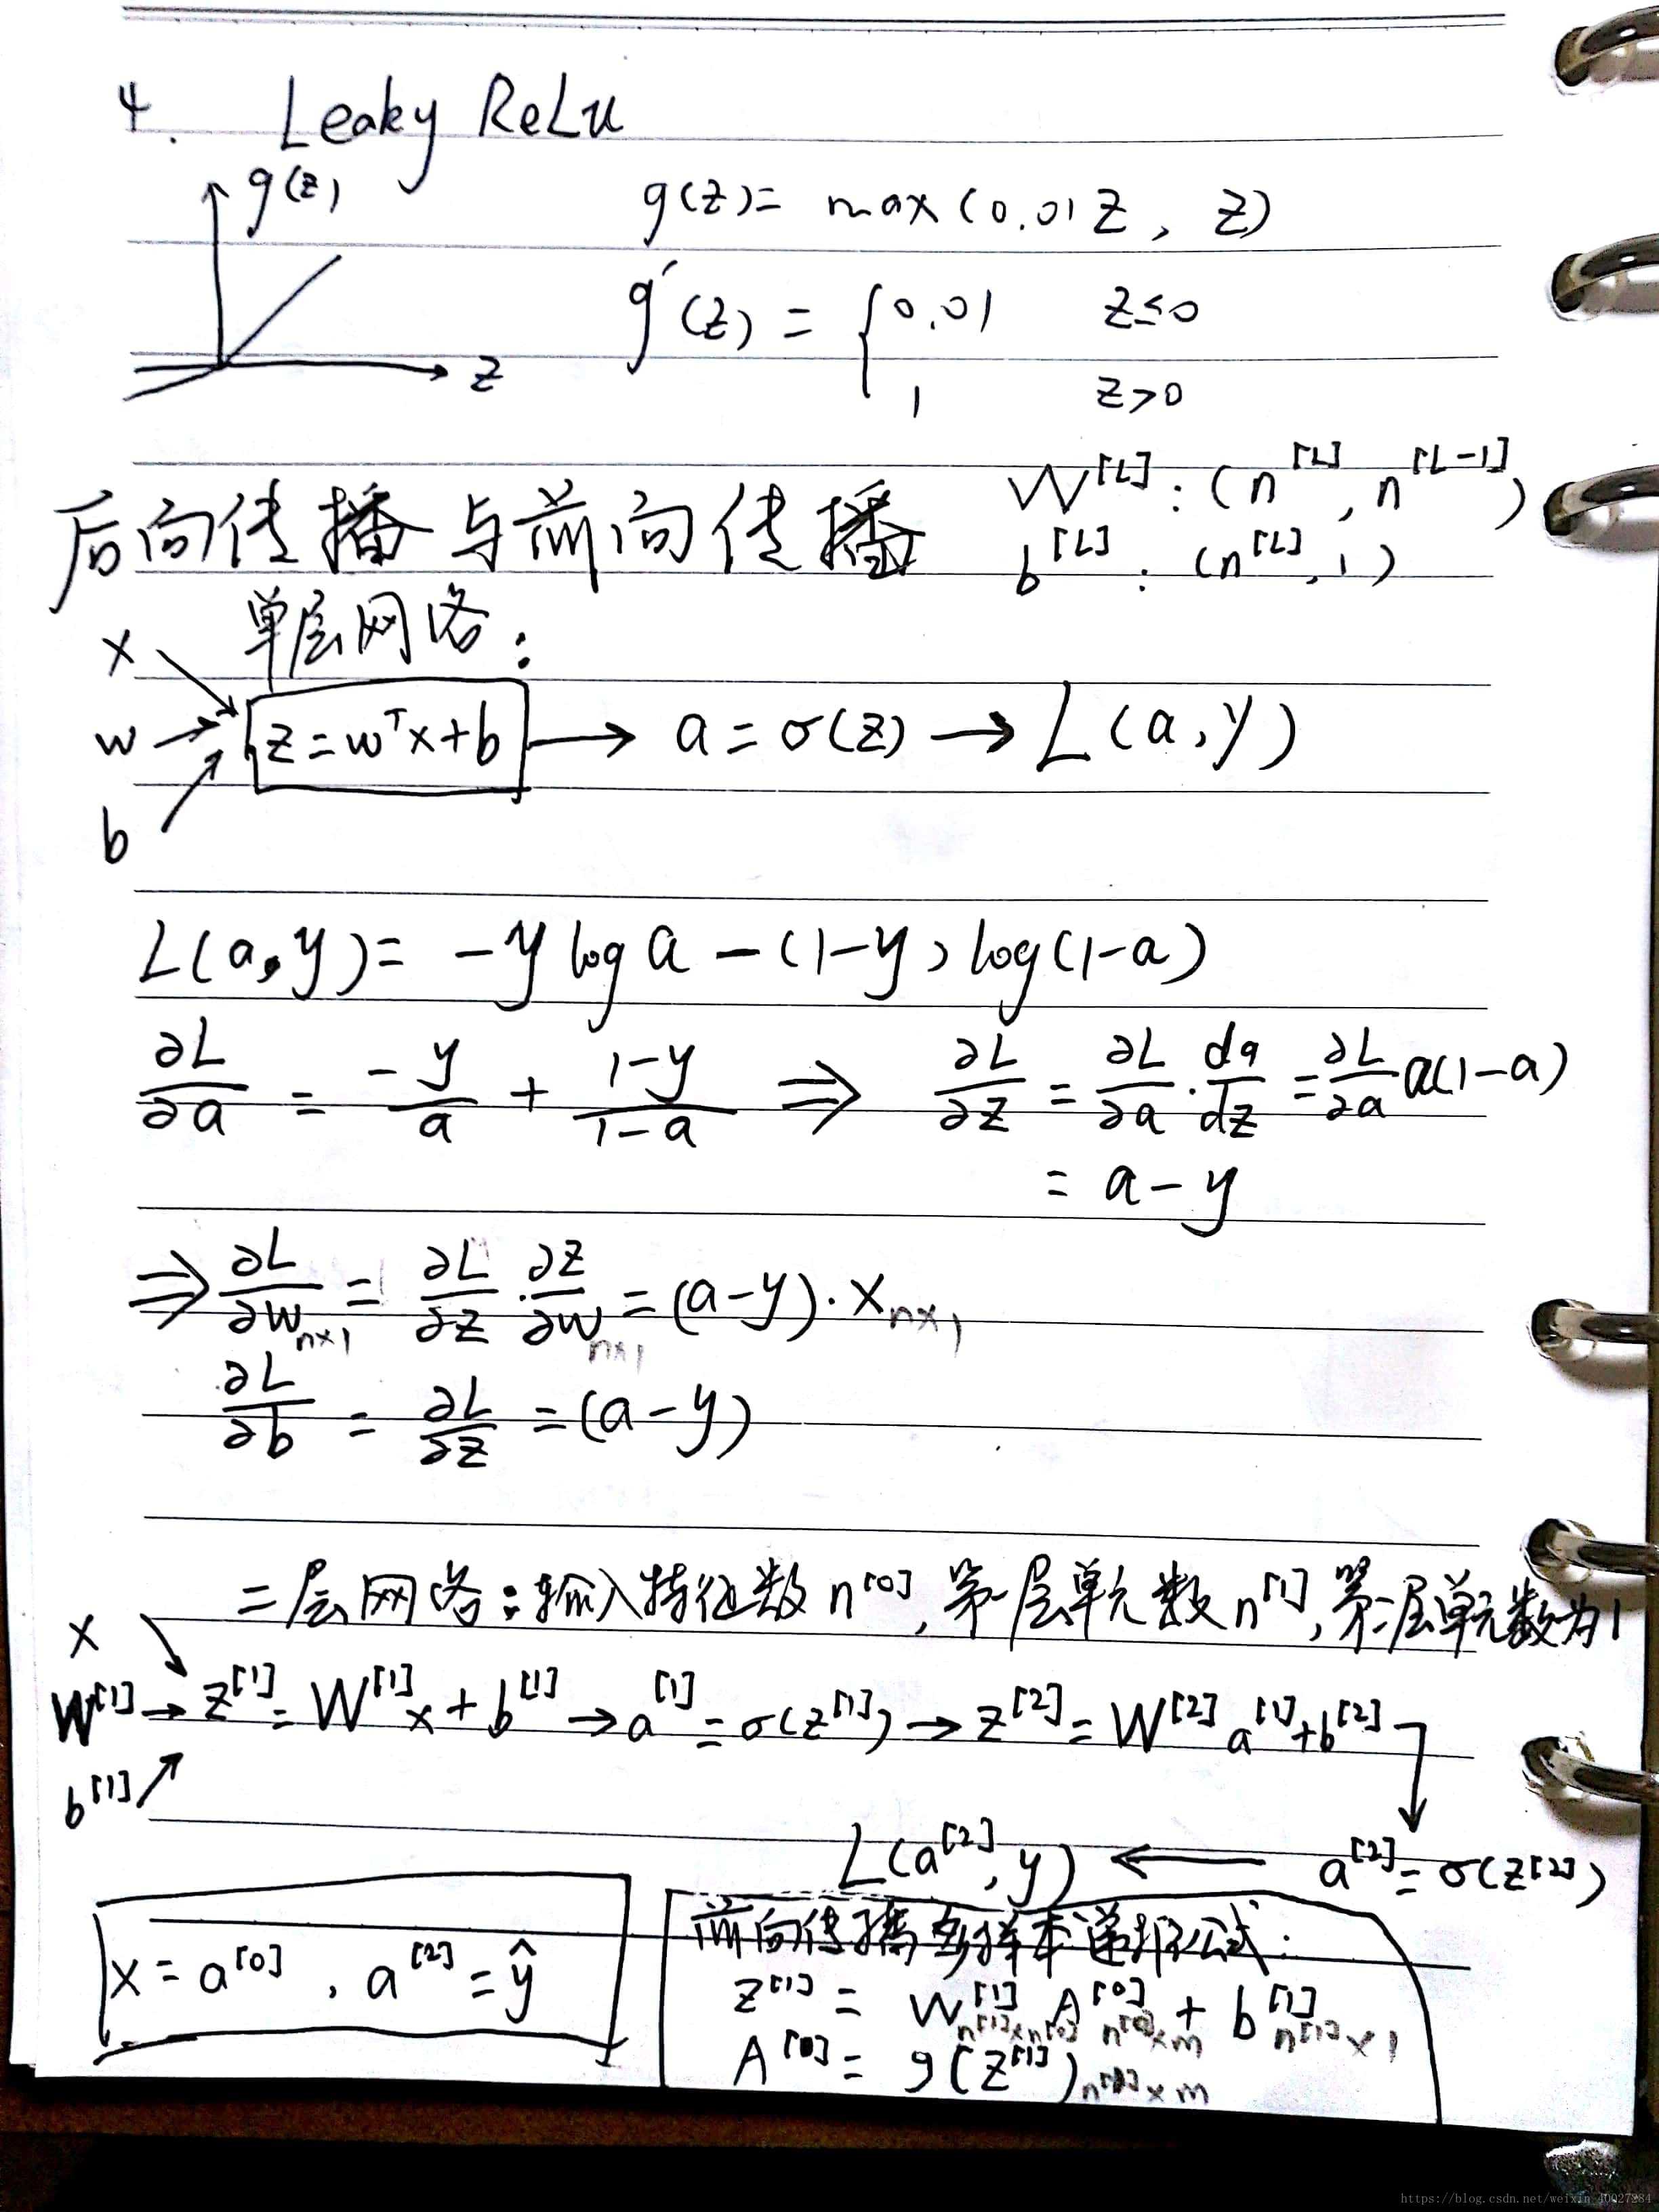 4. Leaky ReLu
g(z)
g(z) = max(0.01z, z)
z
g'(z) = { 0.01 z≤0
1 z>0
W^[L] : (n^[L], n^[L-1])
后向传播与前向传播
b^[L] : (n^[L], 1)
单层网络:
x
w → z = w^T x + b → a = σ(z) → L(a, y)
b
L(a, y) = -y log a - (1-y) log(1-a)
∂L/∂a = -y/a + (1-y)/(1-a) ⇒ ∂L/∂z = ∂L/∂a · da/dz = ∂L/∂a a(1-a)
= a - y
⇒ ∂L/∂w_{n×1} = ∂L/∂z · ∂z/∂w_{n×1} = (a-y) · x_{n×1}
∂L/∂b = ∂L/∂z = (a-y)
二层网络:输入特征数n^[0], 第一层单元数n^[1], 第二层单元数为1
x
W^[1] → z^[1] = W^[1] x + b^[1] → a^[1] = σ(z^[1]) → z^[2] = W^[2] a^[1] + b^[2]
b^[1]
L(a^[2], y) ← a^[2] = σ(z^[2])
x = a^[0], a^[2] = ŷ
前向传播多样本递推公式:
z^[1] = W^[1]_{n^[1]×n^[0]} A^[0]_{n^[0]×m} + b^[1]_{n^[1]×1}
= g(z^[1])
https://blog.csdn.net/weixin_40027284